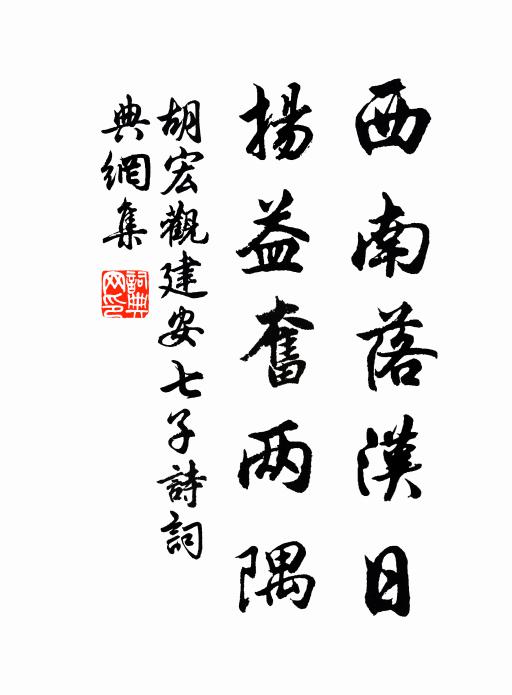 西南落漢日
揚益奮兩隅
胡宏觀建安七子詩詞
典網集
詞典網印